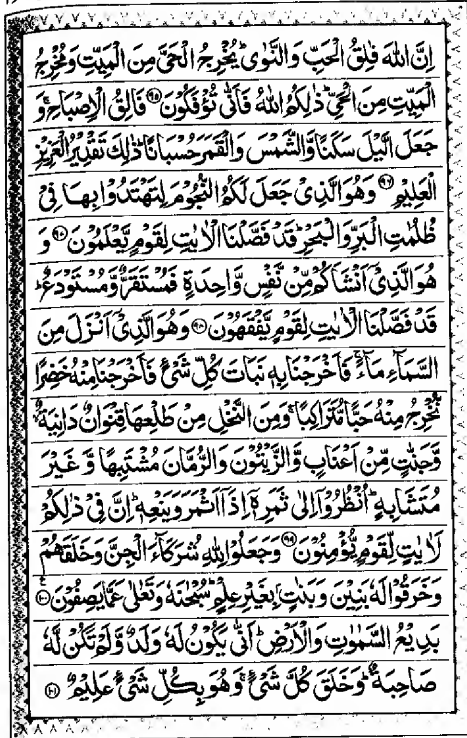 اِنَّ اللّٰهَ فٰلِقُ الْحَبِّ وَالنَّوٰىؕ يُخْرِجُ الْحَىَّ مِنَ الْمَيِّتِ وَمُخْرِجُ
الْمَيِّتِ مِنَ الْحَىِّؕ ذٰلِكُمُ اللّٰهُ فَاَنّٰى تُؤْفَكُوْنَ ﴿٩٥﴾ فَالِقُ الْاِصْبَاحِۚ وَ
جَعَلَ الَّيْلَ سَكَنًا وَّالشَّمْسَ وَالْقَمَرَ حُسْبَانًاؕ ذٰلِكَ تَقْدِيْرُ الْعَزِيْزِ
الْعَلِيْمِ ﴿٩٦﴾ وَهُوَ الَّذِىْ جَعَلَ لَكُمُ النُّجُوْمَ لِتَهْتَدُوْا بِهَا فِىْ
ظُلُمٰتِ الْبَرِّ وَالْبَحْرِؕ قَدْ فَصَّلْنَا الْاٰيٰتِ لِقَوْمٍ يَّعْلَمُوْنَ ﴿٩٧﴾ وَ
هُوَ الَّذِىْۤ اَنْشَاَكُمْ مِّنْ نَّفْسٍ وَّاحِدَةٍ فَمُسْتَقَرٌّ وَّمُسْتَوْدَعٌؕ
قَدْ فَصَّلْنَا الْاٰيٰتِ لِقَوْمٍ يَّفْقَهُوْنَ ﴿٩٨﴾ وَهُوَ الَّذِىْۤ اَنْزَلَ مِنَ
السَّمَآءِ مَآءًۚ فَاَخْرَجْنَا بِهٖ نَبَاتَ كُلِّ شَىْءٍ فَاَخْرَجْنَا مِنْهُ خَضِرًا
نُّخْرِجُ مِنْهُ حَبًّا مُّتَرَاكِبًاۚ وَمِنَ النَّخْلِ مِنْ طَلْعِهَا قِنْوَانٌ دَانِيَةٌ
وَّجَنّٰتٍ مِّنْ اَعْنَابٍ وَّالزَّيْتُوْنَ وَالرُّمَّانَ مُشْتَبِهًا وَّغَيْرَ
مُتَشَابِهٍؕ اُنْظُرُوْۤا اِلٰى ثَمَرِهٖۤ اِذَاۤ اَثْمَرَ وَيَنْعِهٖؕ اِنَّ فِىْ ذٰلِكُمْ
لَاٰيٰتٍ لِّقَوْمٍ يُّؤْمِنُوْنَ ﴿٩٩﴾ وَجَعَلُوْا لِلّٰهِ شُرَكَآءَ الْجِنَّ وَخَلَقَهُمْ
وَخَرَقُوْا لَهٗ بَنِيْنَ وَبَنٰتٍۭ بِغَيْرِ عِلْمٍؕ سُبْحٰنَهٗ وَتَعٰلٰى عَمَّا يَصِفُوْنَ ﴿١٠٠﴾
بَدِيْعُ السَّمٰوٰتِ وَالْاَرْضِؕ اَنّٰى يَكُوْنُ لَهٗ وَلَدٌ وَّلَمْ تَكُنْ لَّهٗ
صَاحِبَةٌؕ وَخَلَقَ كُلَّ شَىْءٍۚ وَهُوَ بِكُلِّ شَىْءٍ عَلِيْمٌ ﴿١٠١﴾